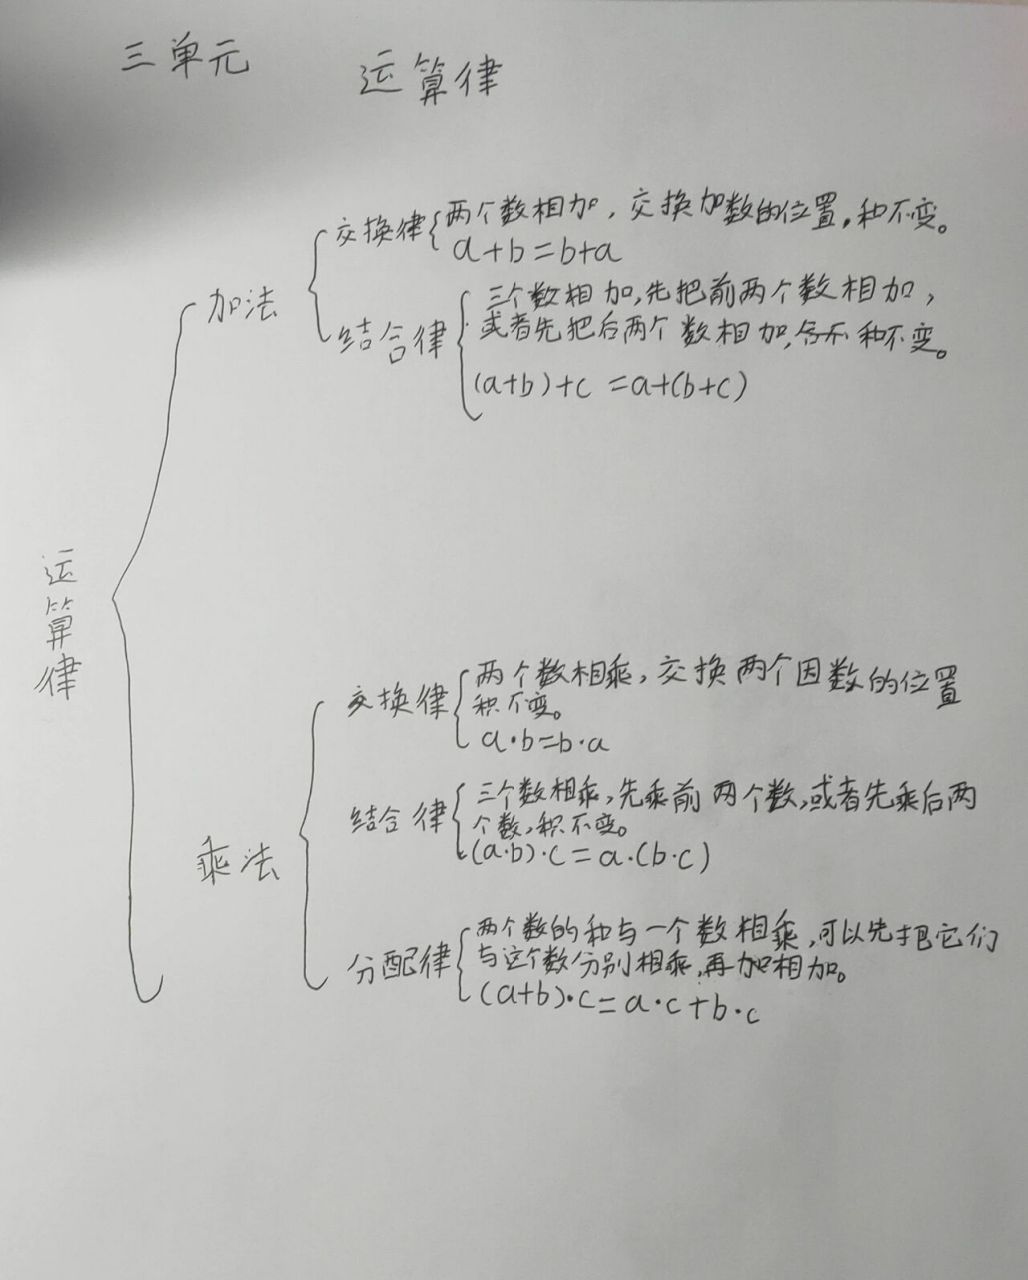 三单元
运算律
运算律
加法
交换律
两个数相加，交换加数的位置，和不变。
a+b=b+a
结合律
三个数相加，先把前两个数相加，
或者先把后两个数相加，和不变。
(a+b)+c=a+(b+c)
乘法
交换律
两个数相乘，交换两个因数的位置
积不变。
a·b=b·a
结合律
三个数相乘，先乘前两个数，或者先乘后两
个数，积不变。
(a·b)·c=a·(b·c)
分配律
两个数的和与一个数相乘，可以先把它们
与这个数分别相乘，再加相加。
(a+b)·c=a·c+b·c